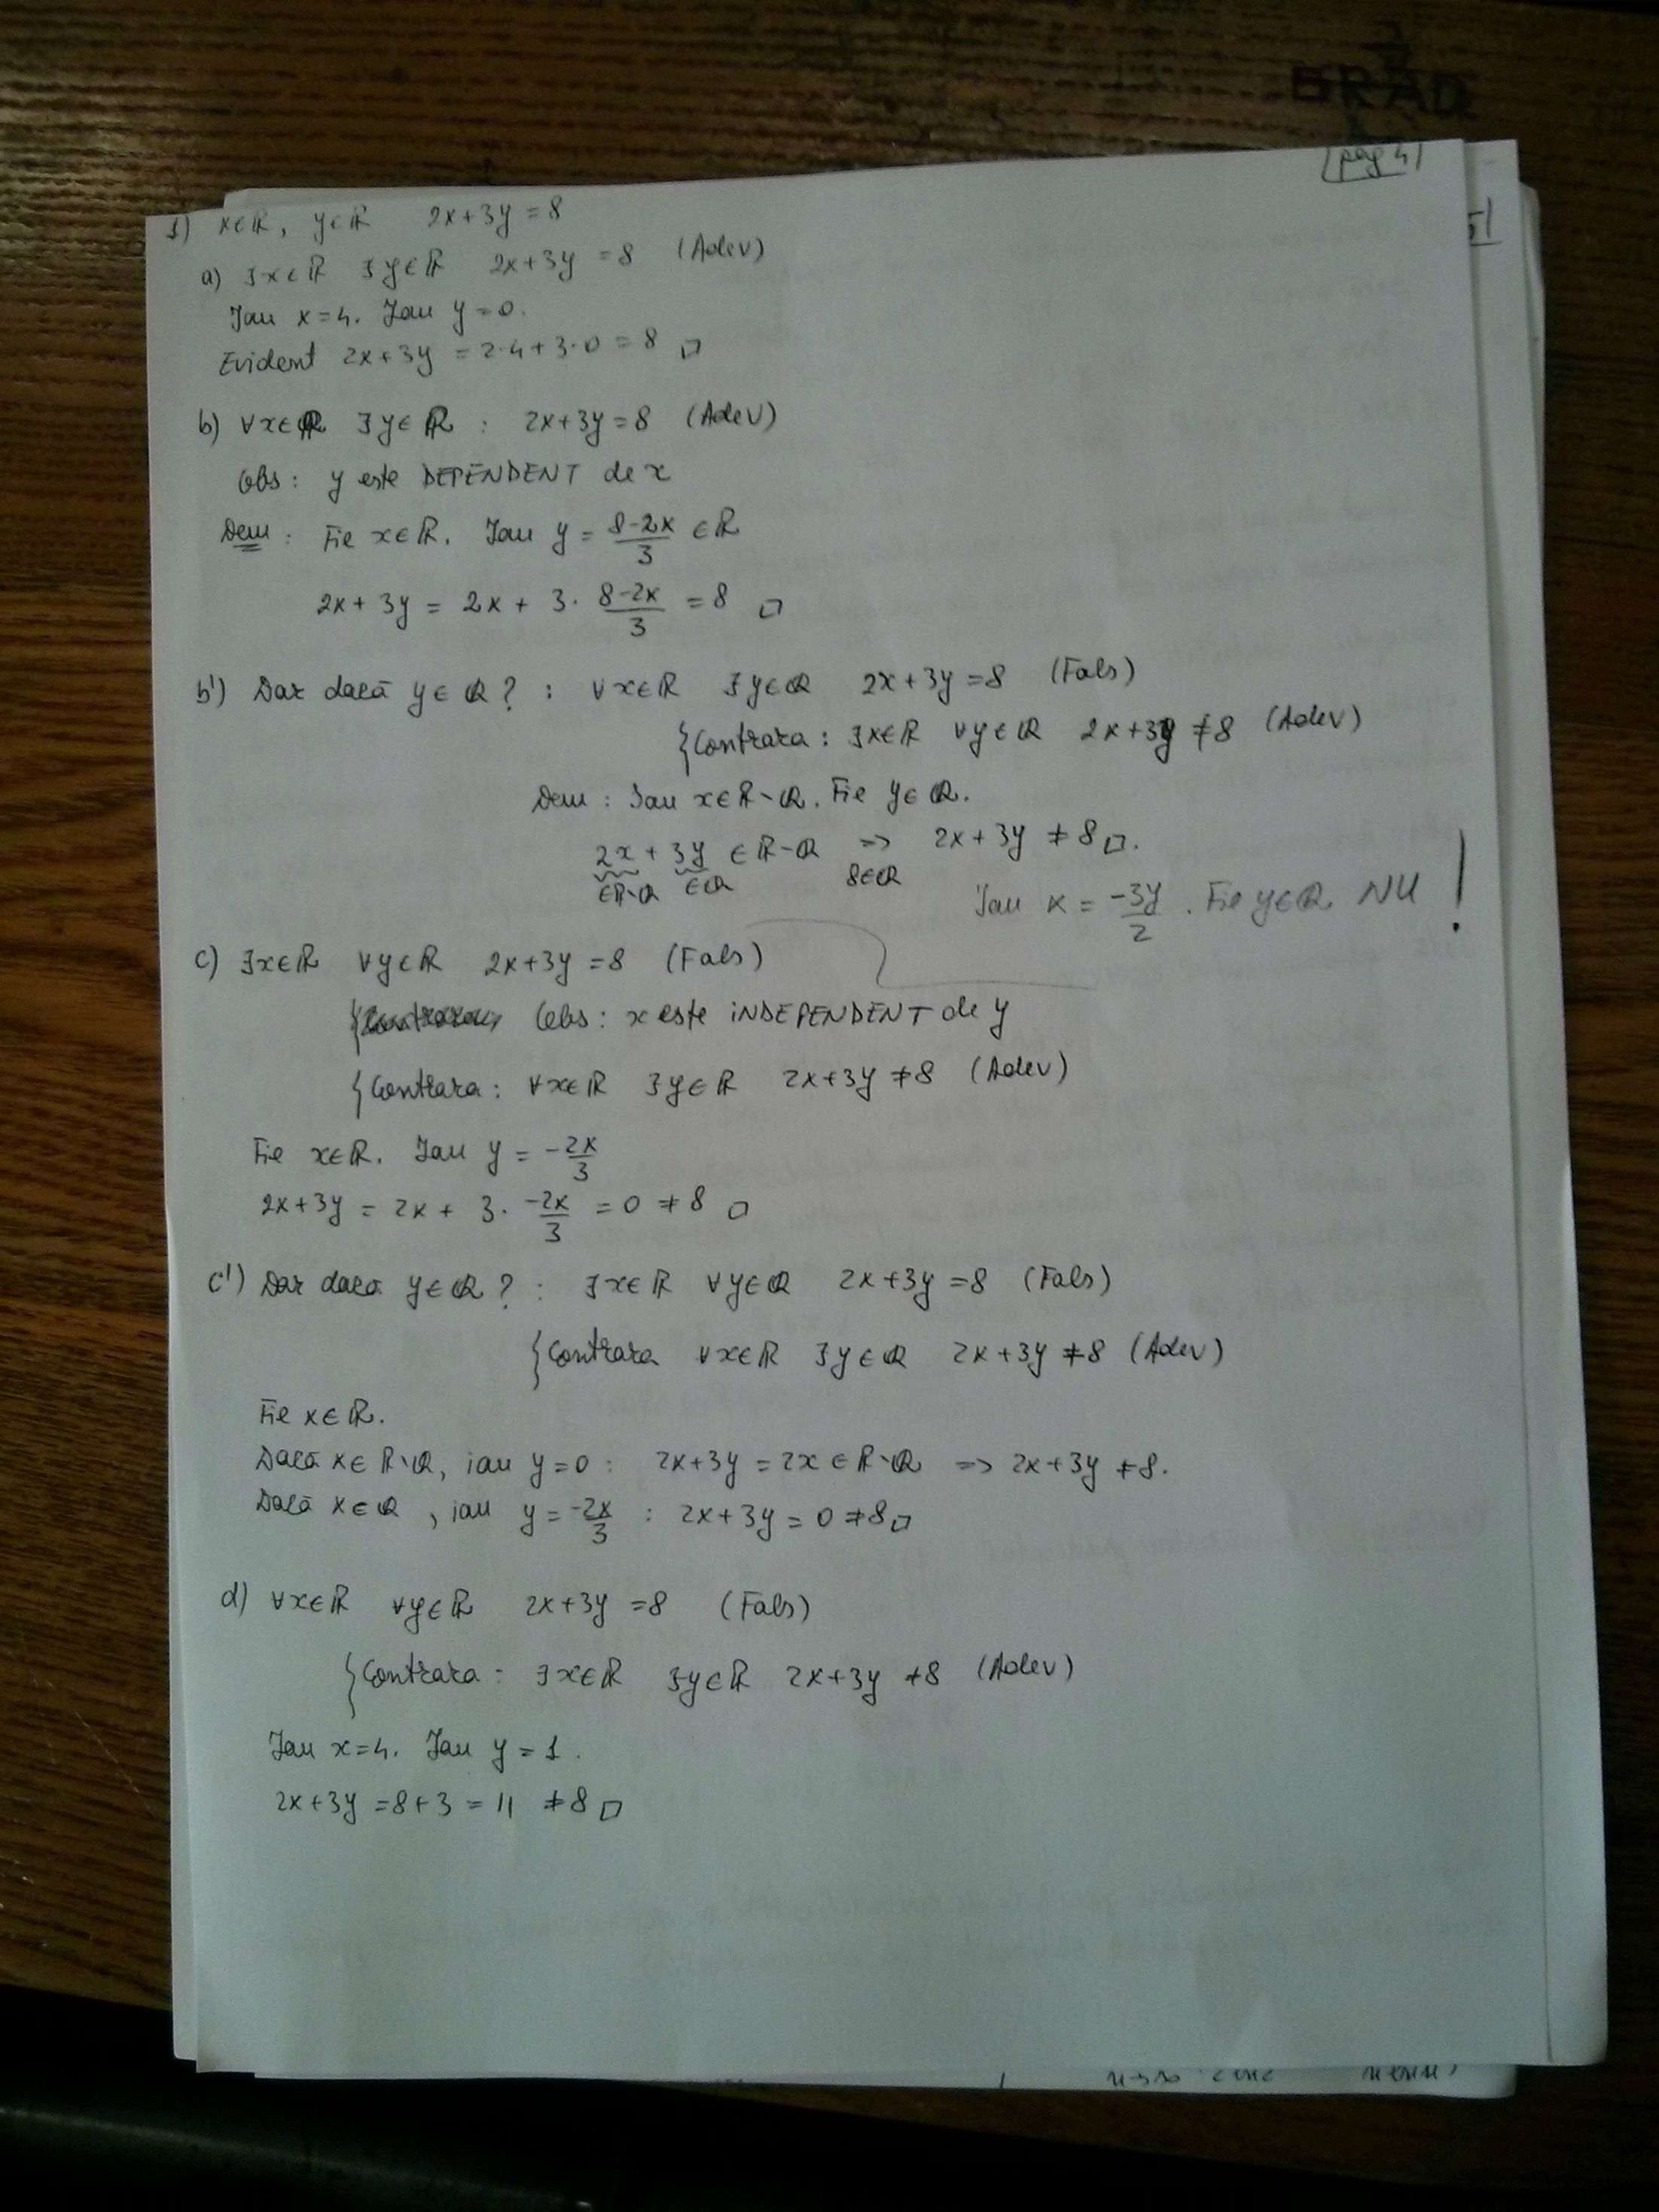 BRAD
pag 4
1) x∈ℝ, y∈ℝ 2x+3y=8
a) ∃x∈ℝ ∃y∈ℝ 2x+3y=8 (Adev)
Iau x=4. Iau y=0.
Evident 2x+3y = 2·4+3·0 = 8 □
b) ∀x∈ℝ ∃y∈ℝ : 2x+3y=8 (Adev)
Obs: y este DEPENDENT de x
Dem: Fie x∈ℝ. Iau y = (8-2x)/3 ∈ℝ
2x+3y = 2x + 3·(8-2x)/3 = 8 □
b') Dar dacă y∈ℚ? : ∀x∈ℝ ∃y∈ℚ 2x+3y=8 (Fals)
{Contrara: ∃x∈ℝ ∀y∈ℚ 2x+3y≠8 (Adev)
Dem: Iau x∈ℝ∖ℚ. Fie y∈ℚ.
2x + 3y ∈ℝ∖ℚ => 2x+3y ≠ 8 □.
∈ℝ∖ℚ ∈ℚ 8∈ℚ
Iau x = -3y/2. Fie y∈ℚ NU !
c) ∃x∈ℝ ∀y∈ℝ 2x+3y=8 (Fals)
Obs: x este INDEPENDENT de y
{Contrara: ∀x∈ℝ ∃y∈ℝ 2x+3y≠8 (Adev)
Fie x∈ℝ. Iau y = -2x/3
2x+3y = 2x + 3·-2x/3 = 0 ≠ 8 □
c') Dar dacă y∈ℚ? : ∃x∈ℝ ∀y∈ℚ 2x+3y=8 (Fals)
{Contrara ∀x∈ℝ ∃y∈ℚ 2x+3y≠8 (Adev)
Fie x∈ℝ.
Dacă x∈ℝ∖ℚ, iau y=0: 2x+3y = 2x ∈ℝ∖ℚ => 2x+3y ≠8.
Dacă x∈ℚ, iau y = -2x/3 : 2x+3y = 0 ≠8 □
d) ∀x∈ℝ ∀y∈ℝ 2x+3y=8 (Fals)
{Contrara: ∃x∈ℝ ∃y∈ℝ 2x+3y ≠8 (Adev)
Iau x=4. Iau y=1.
2x+3y =8+3 = 11 ≠8 □